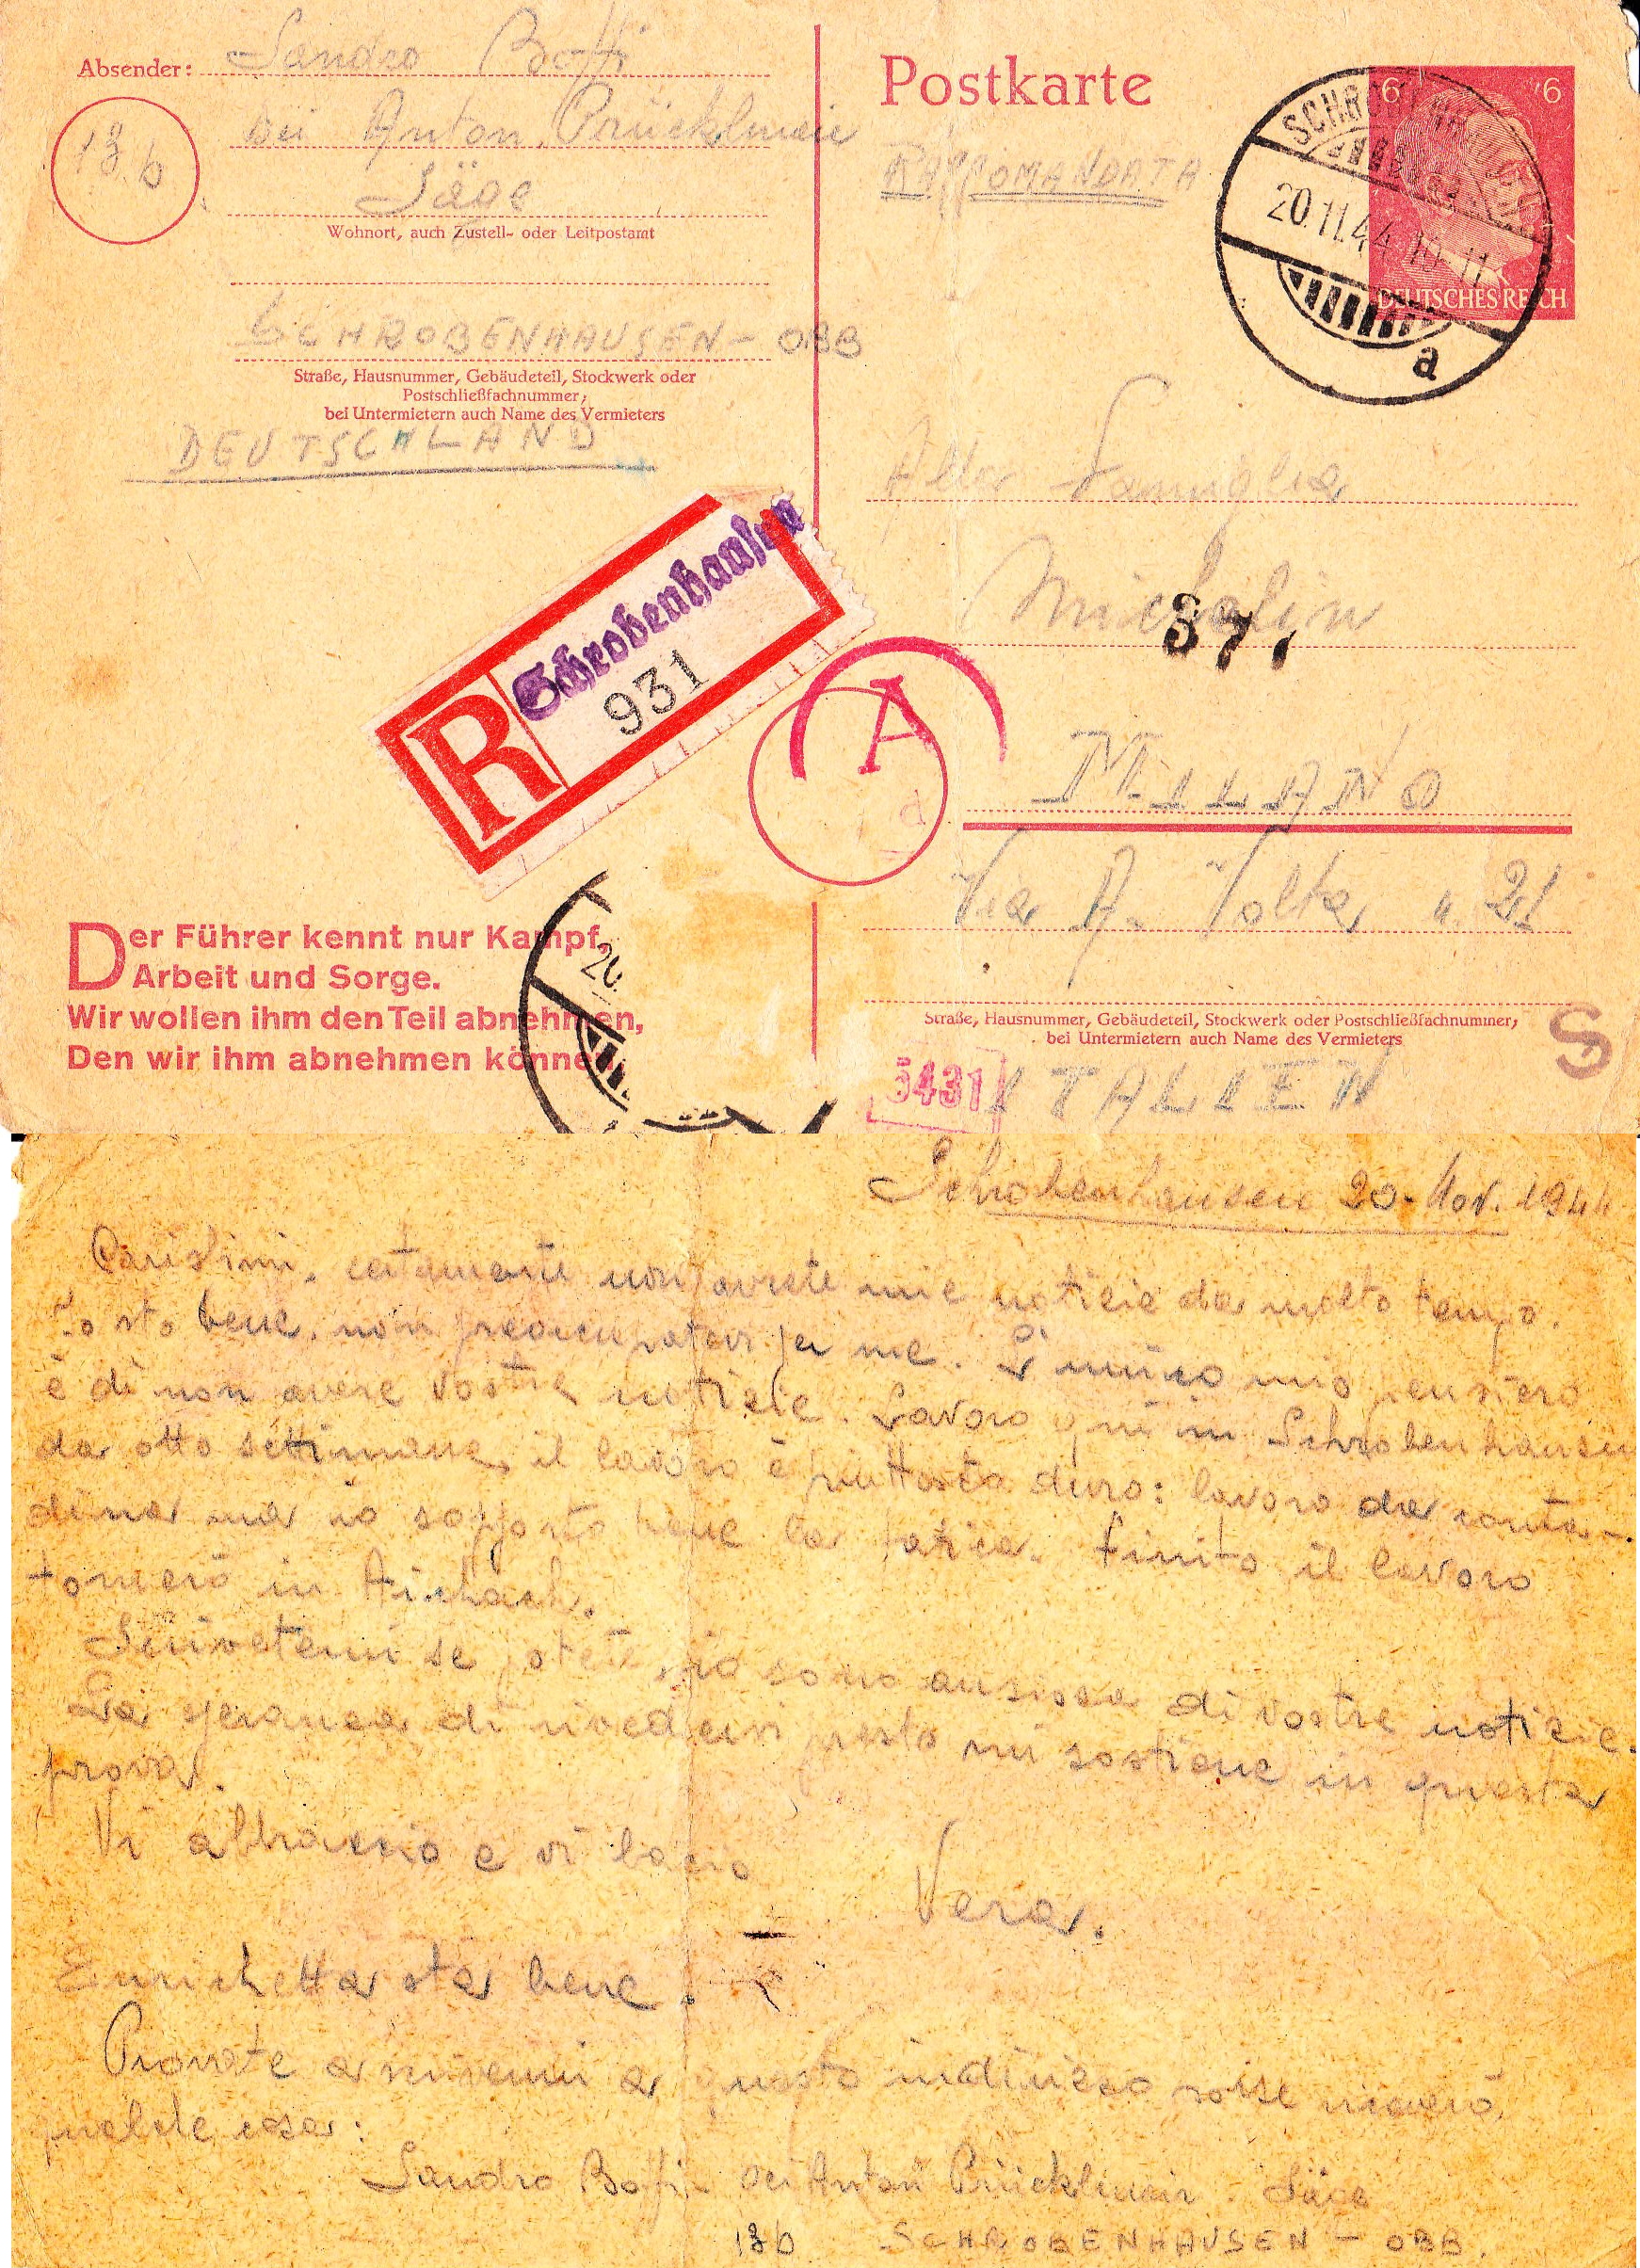 Absender: Sandro Boffi
bei Anton Prücklmair
13b
Säge
Wohnort, auch Zustell- oder Leitpostamt
SCHROBENHAUSEN - OBB
Straße, Hausnummer, Gebäudeteil, Stockwerk oder
Postschließfachnummer;
bei Untermietern auch Name des Vermieters
DEUTSCHLAND
Postkarte
RACCOMANDATA
6 6
DEUTSCHES REICH
SCHROBENHAUSEN
20.11.44 10-11
a
Alla Famiglia
Micholin
37,
MILANO
Via A. Volta n. 21
Straße, Hausnummer, Gebäudeteil, Stockwerk oder Postschließfachnummer;
bei Untermietern auch Name des Vermieters
S
5431
ITALIEN
R
Schrobenhausen
931
A
d
Der Führer kennt nur Kampf,
Arbeit und Sorge.
Wir wollen ihm den Teil abnehmen,
Den wir ihm abnehmen können.
20.
Schrobenhausen 20. Nov. 1944
Carissimi, certamente non avrete mie notizie da molto tempo.
Io sto bene, non preoccupatevi per me. L'unico mio pensiero
è di non avere vostre notizie. Lavoro qui in Schrobenhausen
da otto settimane, il lavoro è piuttosto duro: lavoro da conta-
dina ma io sopporto bene la fatica. Finito il lavoro
tornerò in Aichach.
Scrivetemi se potete, io sono ansiosa di vostre notizie.
La speranza di rivedervi presto mi sostiene in questa
prova.
Vi abbraccio e vi bacio
Vera.
Enrichetta sta bene.
Provate a scrivermi a questo indirizzo forse riceverò
qualche cosa:
Sandro Boffi bei Anton Prücklmair. Säge
13b SCHROBENHAUSEN - OBB.